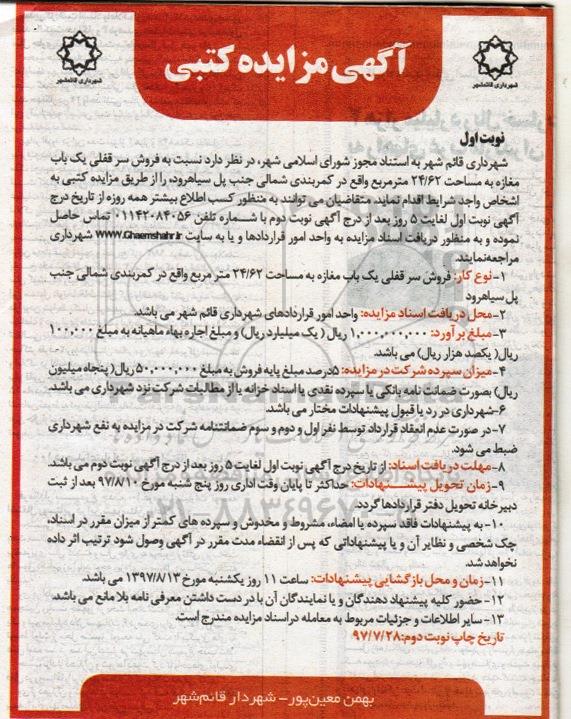 آگهی مزایده کتبی
شهرداری قائمشهر
شهرداری قائمشهر
نوبت اول
شهرداری قائم شهر به استناد مجوز شورای اسلامی شهر، در نظر دارد نسبت به فروش سر قفلی یک باب
مغازه به مساحت ۲۴/۶۲ مترمربع واقع در کمربندی شمالی جنب پل سیاهرود، را از طریق مزایده کتبی به
اشخاص واجد شرایط اقدام نماید. متقاضیان می توانند به منظور کسب اطلاع بیشتر همه روزه از تاریخ درج
آگهی نوبت اول لغایت ۵ روز بعد از درج آگهی نوبت دوم با شماره تلفن ۰۱۱۴۲۰۸۴۰۵۶ تماس حاصل
نموده و به منظور دریافت اسناد مزایده به واحد امور قراردادها و یا به سایت www.Ghaemshahr.ir شهرداری
مراجعه‌نمایند.
۱-نوع کار: فروش سر قفلی یک باب مغازه به مساحت ۲۴/۶۲ متر مربع واقع در کمربندی شمالی جنب
پل سیاهرود
۲-محل دریافت اسناد مزایده: واحد امور قراردادهای شهرداری قائم شهر می باشد.
۳-مبلغ برآورد: ۱,۰۰۰,۰۰۰,۰۰۰ ریال (یک میلیارد ریال) و مبلغ اجاره بهاء ماهیانه به مبلغ ۱۰۰,۰۰۰
ریال( یکصد هزار ریال) می باشد.
۴-میزان سپرده شرکت در مزایده: ۵درصد مبلغ پایه فروش به مبلغ ۵۰,۰۰۰,۰۰۰ ریال( پنجاه میلیون
ریال) بصورت ضمانت نامه بانکی یا سپرده نقدی یا اسناد خزانه یا از مطالبات شرکت نزد شهرداری می باشد.
۶-شهرداری در رد یا قبول پیشنهادات مختار می باشد.
۷-در صورت عدم انعقاد قرارداد توسط نفر اول و دوم و سوم ضمانتنامه شرکت در مزایده به نفع شهرداری
ضبط می شود.
۸-مهلت دریافت اسناد: از تاریخ درج آگهی نوبت اول لغایت ۵ روز بعد از درج آگهی نوبت دوم می باشد.
۹-زمان تحویل پیشنهادات: حداکثر تا پایان وقت اداری روز پنج شنبه مورخ ۹۷/۸/۱۰ بعد از ثبت
دبیرخانه تحویل دفتر قراردادها گردد.
۱۰-به پیشنهادات فاقد سپرده یا امضاء، مشروط و مخدوش و سپرده های کمتر از میزان مقرر در اسناد،
چک شخصی و نظایر آن و یا پیشنهاداتی که پس از انقضاء مدت مقرر در آگهی وصول شود ترتیب اثر داده
نخواهد شد.
۱۱-زمان و محل بازگشایی پیشنهادات: ساعت ۱۱ روز یکشنبه مورخ ۱۳۹۷/۸/۱۳ می باشد.
۱۲-حضور کلیه پیشنهاد دهندگان و یا نمایندگان آن با در دست داشتن معرفی نامه بلا مانع می باشد.
۱۳-سایر اطلاعات و جزئیات مربوط به معامله در اسناد مزایده مندرج است.
تاریخ چاپ نوبت دوم: ۹۷/۷/۲۸
بهمن معین‌پور- شهردار قائم‌شهر